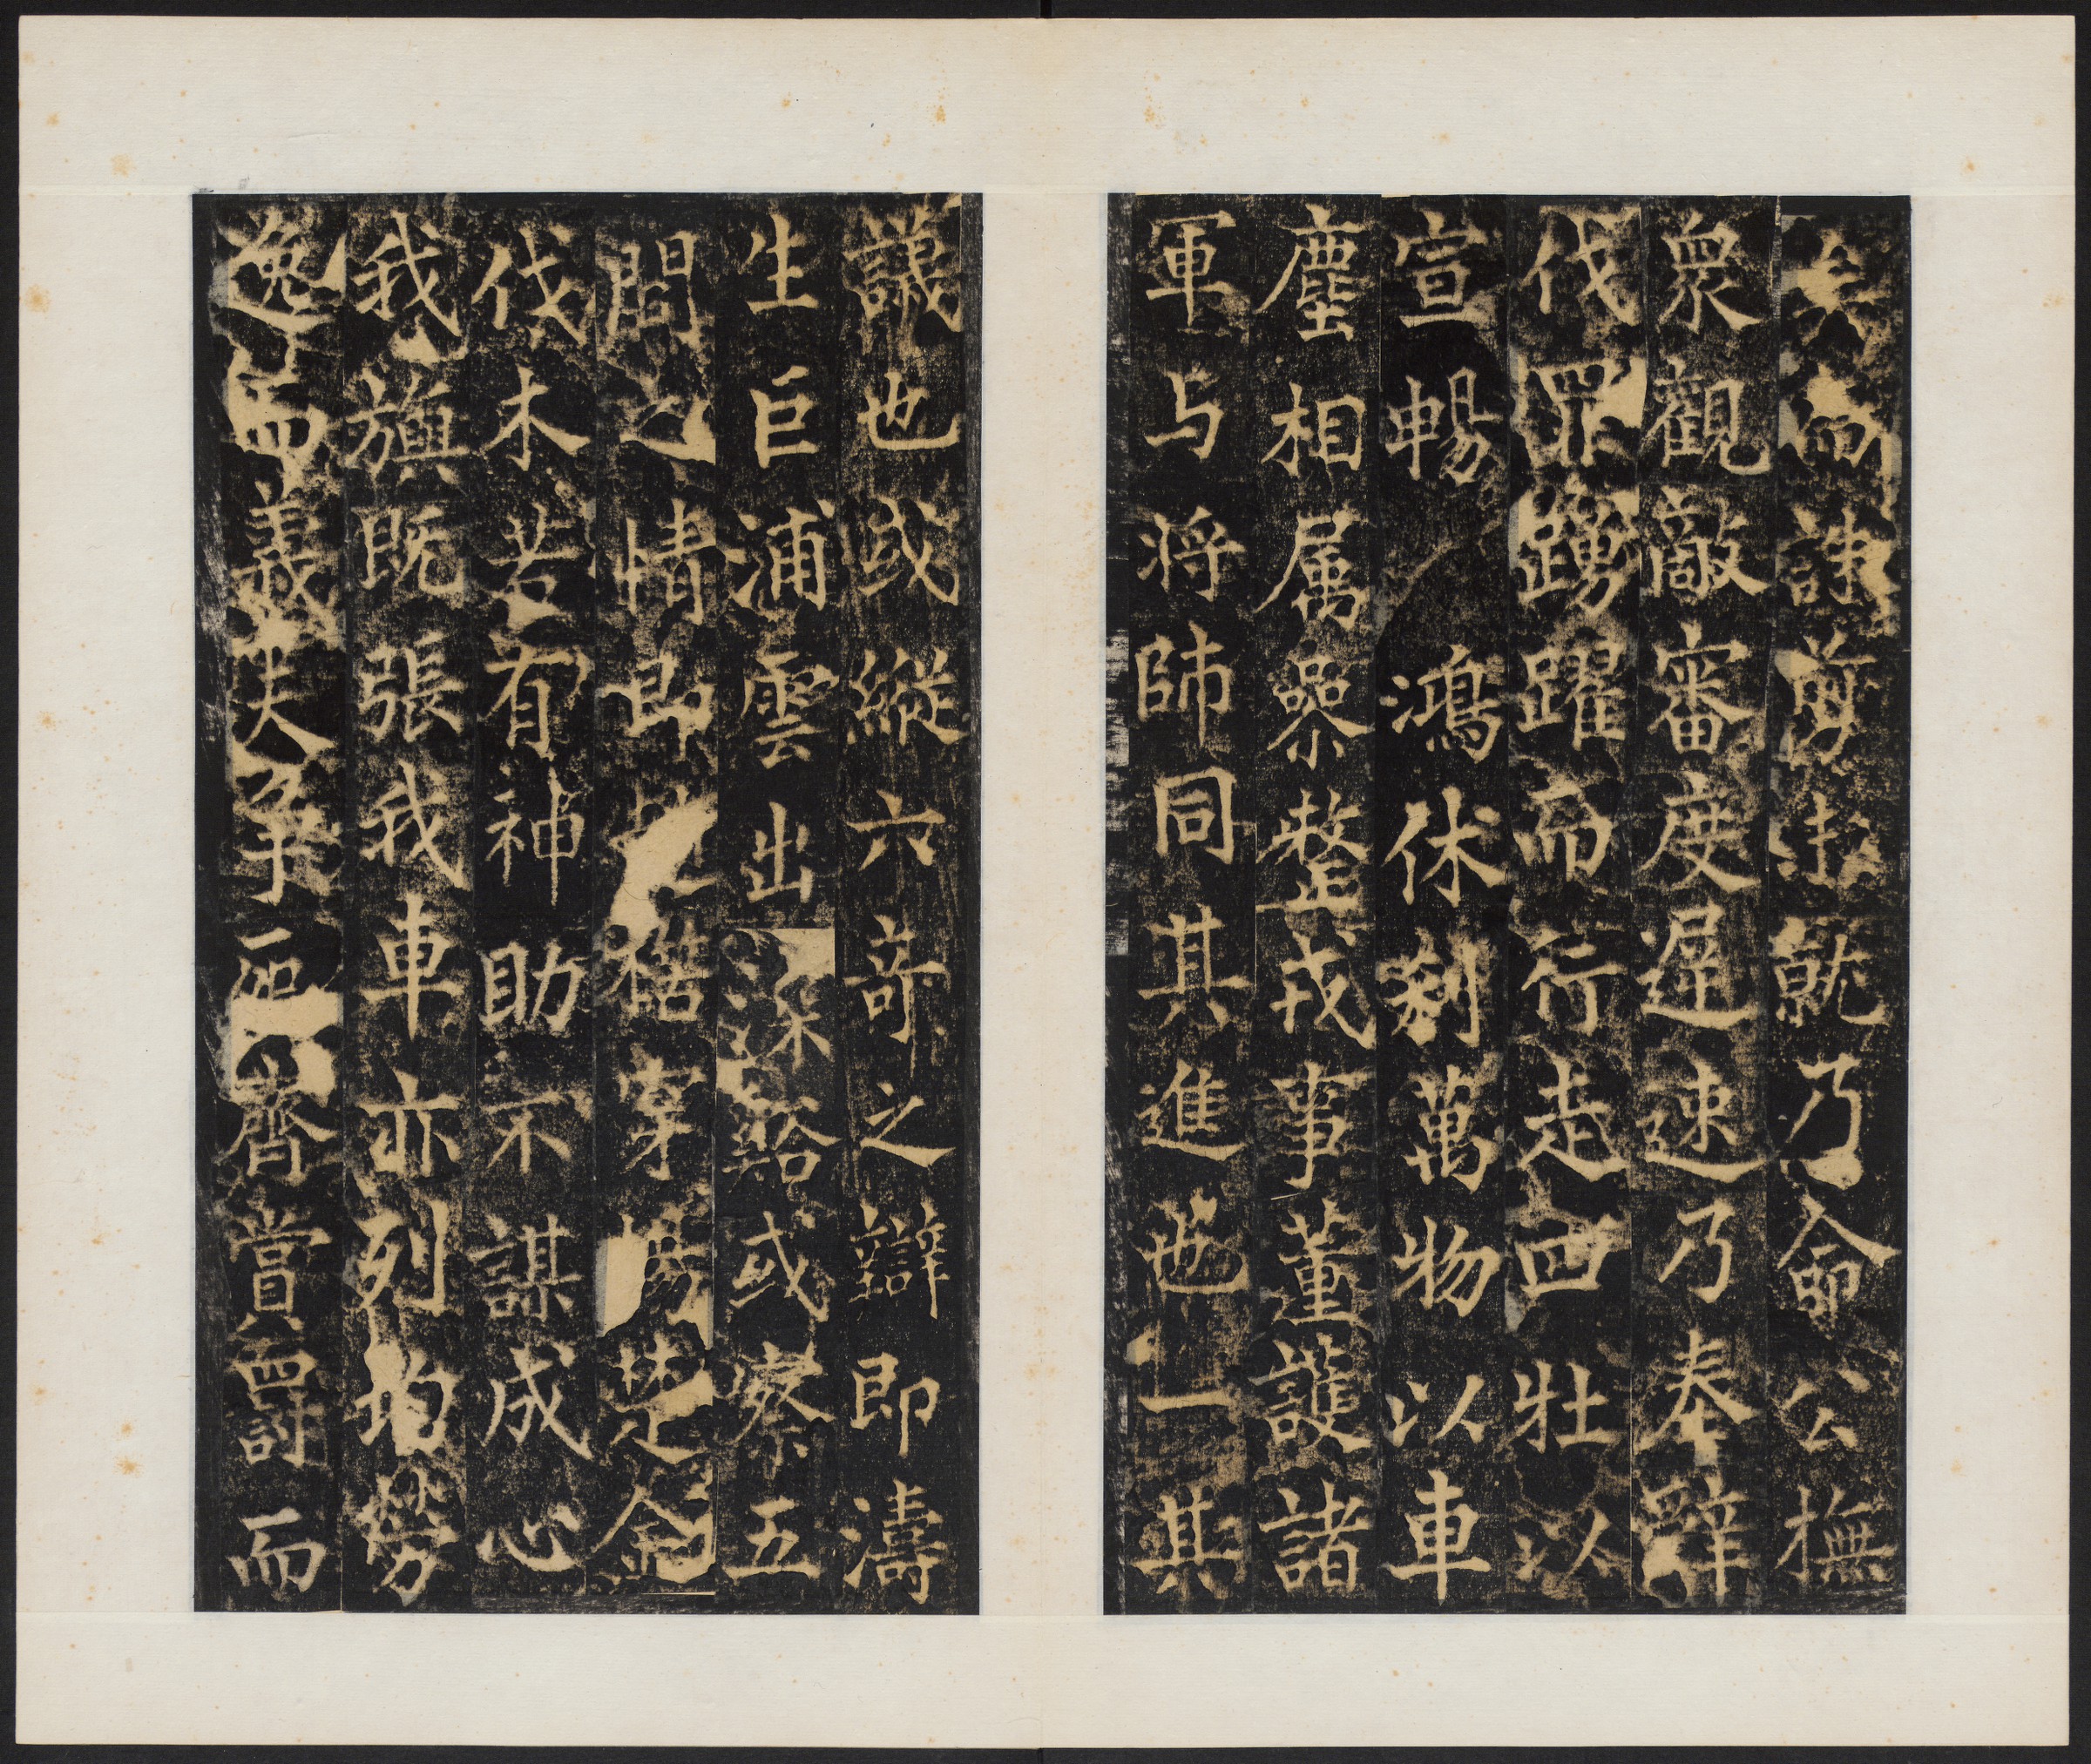 矣而誅前 就乃命公撫
衆觀敵審度遲速乃奉辞
伐罪踴躍而行走四牡以
宣暢鴻休剗萬物以車
塵相属喿整戎事董護諸
軍与将師同其進也一其
議也或縱六奇之辯即濤
生巨浦雲出深谿或察五
間之情即 楛穿楊楚金
伐木若有神助不謀成心
我旟既張我車亦列均勞
逸而義夫爭 齊賞罰而